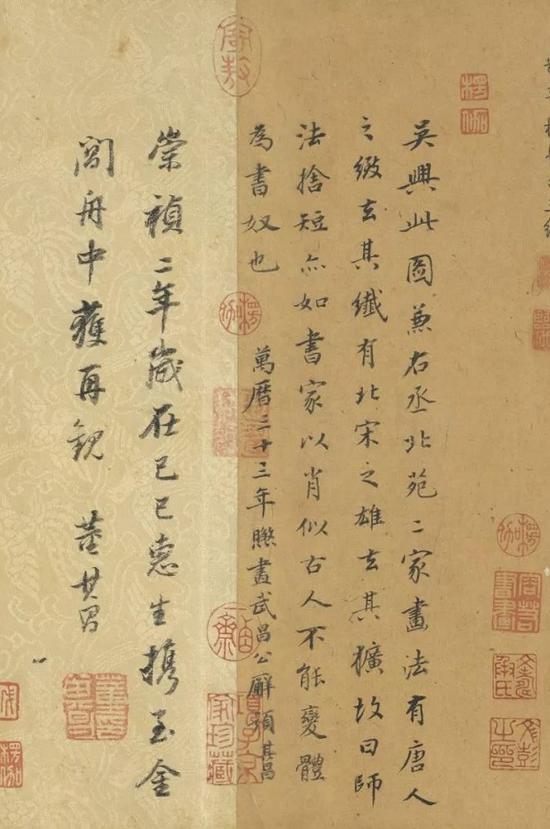 吳興此圖兼右丞北苑二家畫法有唐人
之緻去其纖有北宋之雄去其獷故曰師
法捨短亦如書家以肖似古人不能變體
為書奴也 萬曆三十三年畫武昌公廨題 其昌
崇禎二年歲在己巳惠生攜至金
閶舟中獲再觀 董其昌
楞伽
楞伽
楞伽
家珍藏
楞伽